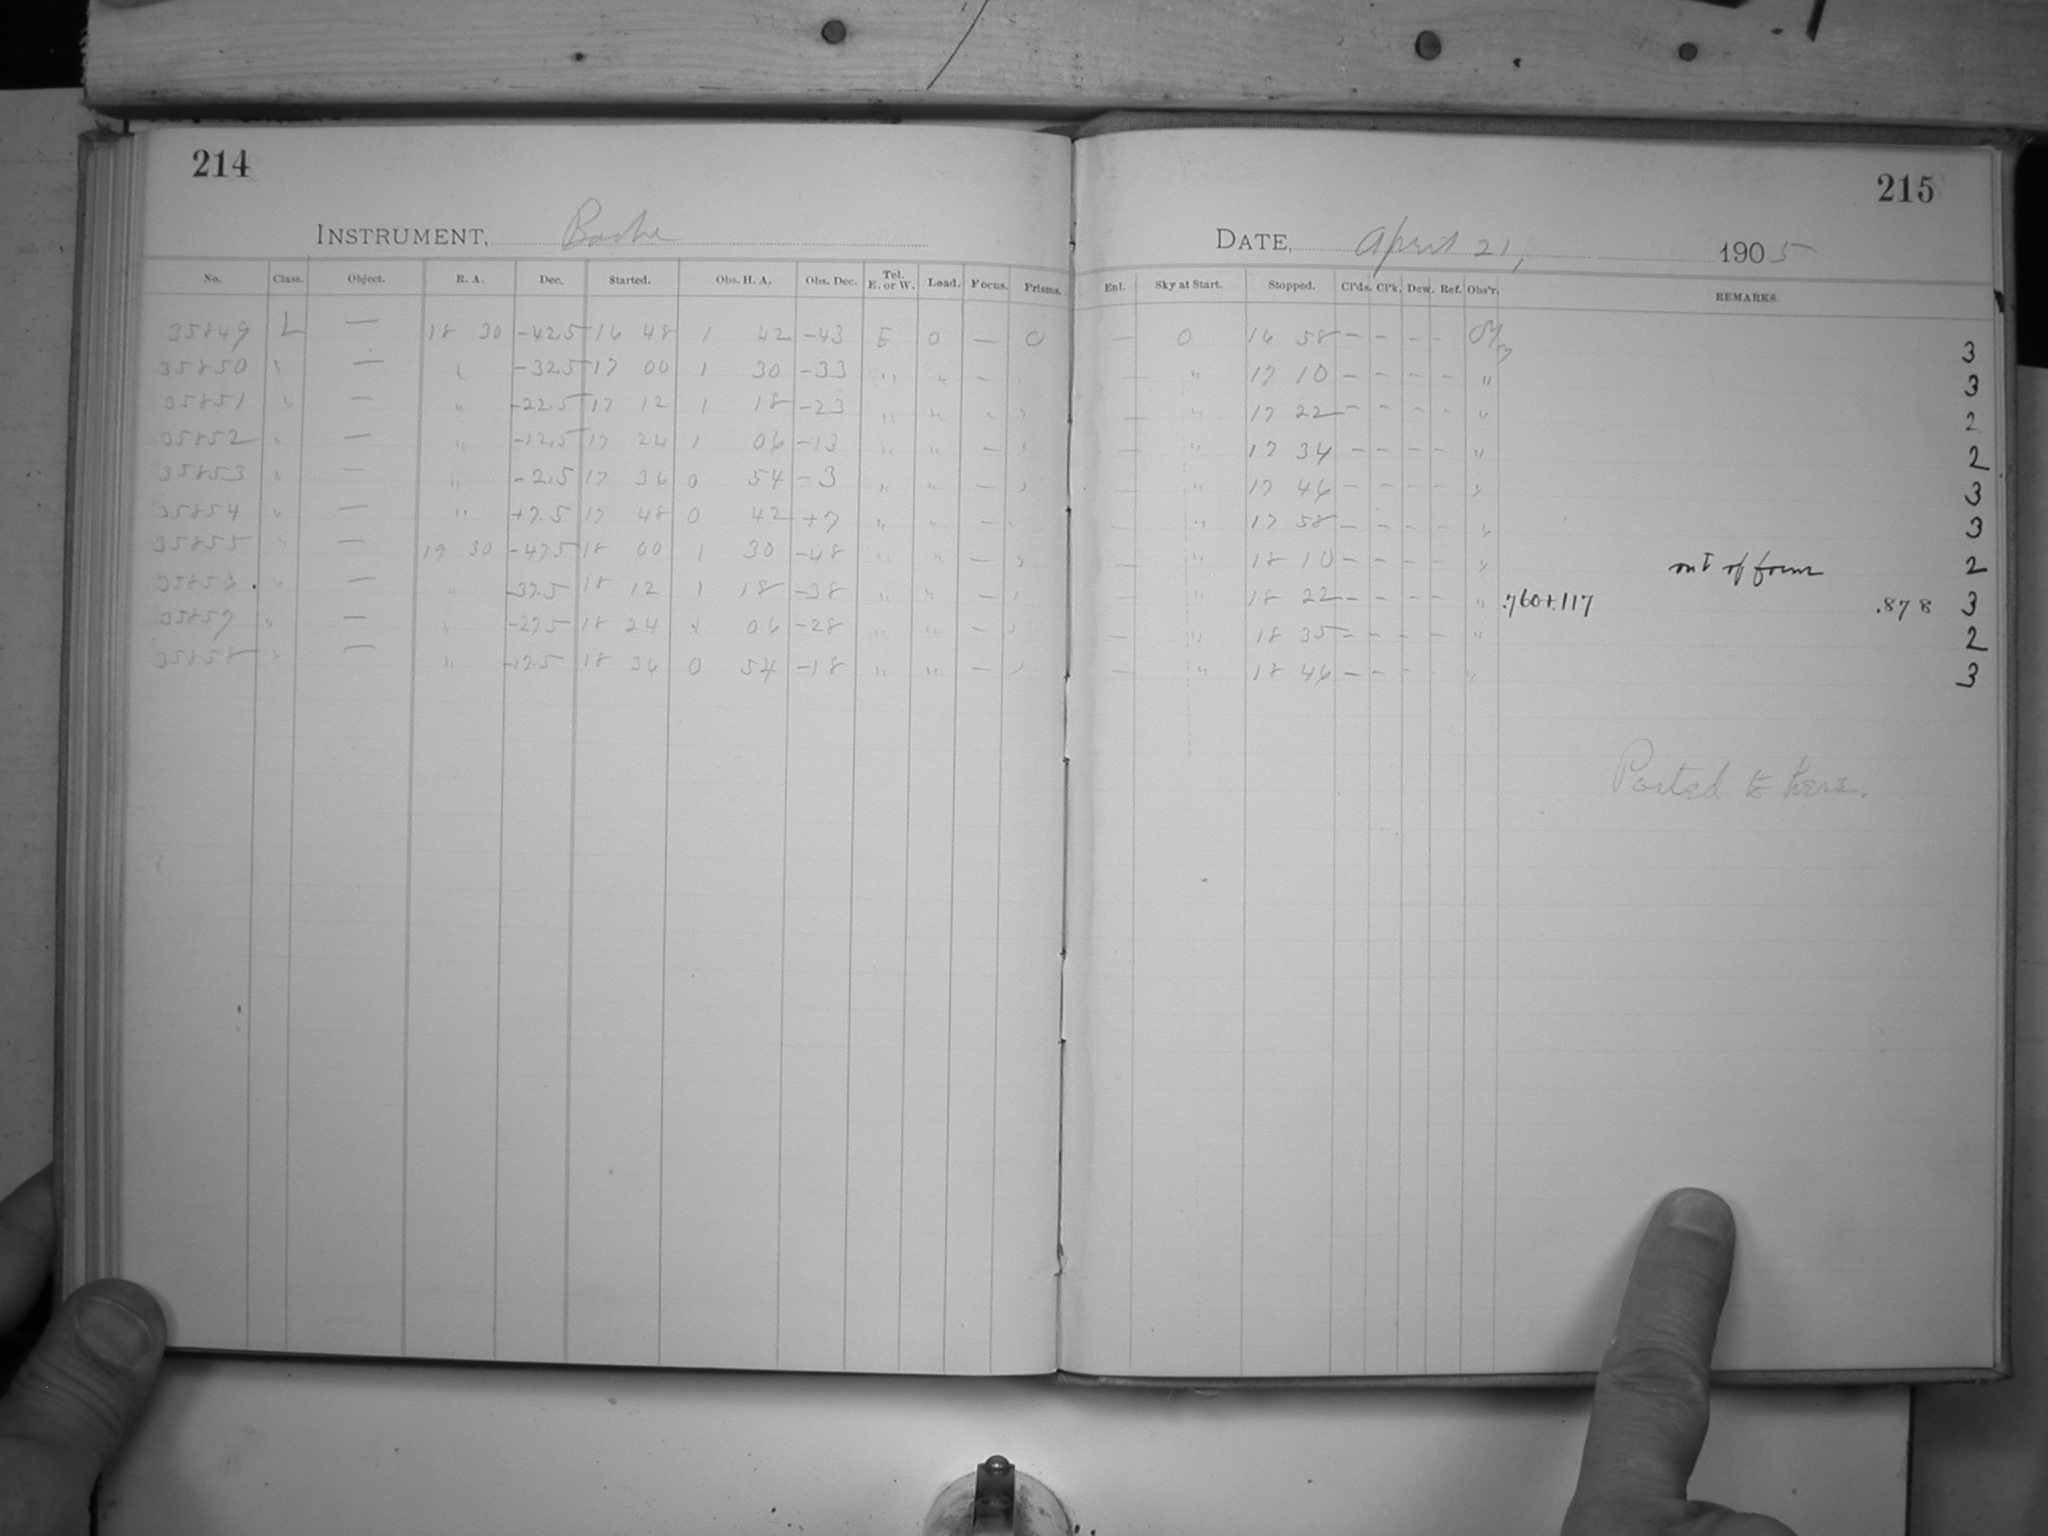 214
INSTRUMENT, Bache
No. Class. Object. R. A. Dec. Started. Obs. H. A. Obs. Dec. Tel. E. or W. Load. Focus. Prisms.
35849 L — 18 30 -42.5 16 48 1 42 -43 E 0 — 0
35850 " — " -32.5 17 00 1 30 -33 " " — "
35851 " — " -22.5 17 12 1 18 -23 " " — "
35852 " — " -12.5 17 24 1 06 -13 " " — "
35853 " — " -2.5 17 36 0 54 -3 " " — "
35854 " — " +7.5 17 48 0 42 +7 " " — "
35855 " — 19 30 -47.5 18 00 1 30 -48 " " — "
35856 " — " -37.5 18 12 1 18 -38 " " — "
35857 " — " -27.5 18 24 1 06 -28 " " — "
35858 " — " -17.5 18 36 0 54 -18 " " — "
215
DATE, April 21, 1905
Enl. Sky at Start. Stopped. Cl'ds. Cl'k. Dew. Ref. Obs'r. REMARKS.
— 0 16 58 — — — — 3
— " 17 10 — — — — " 3
— " 17 22 — — — — " 2
— " 17 34 — — — — " 2
— " 17 46 — — — — " 3
— " 17 58 — — — — " 3
— " 18 10 — — — — " out of focus 2
— " 18 22 — — — — " .760+.117 .878 3
— " 18 35 — — — — " 2
— " 18 46 — — — — " 3
Posted to here.